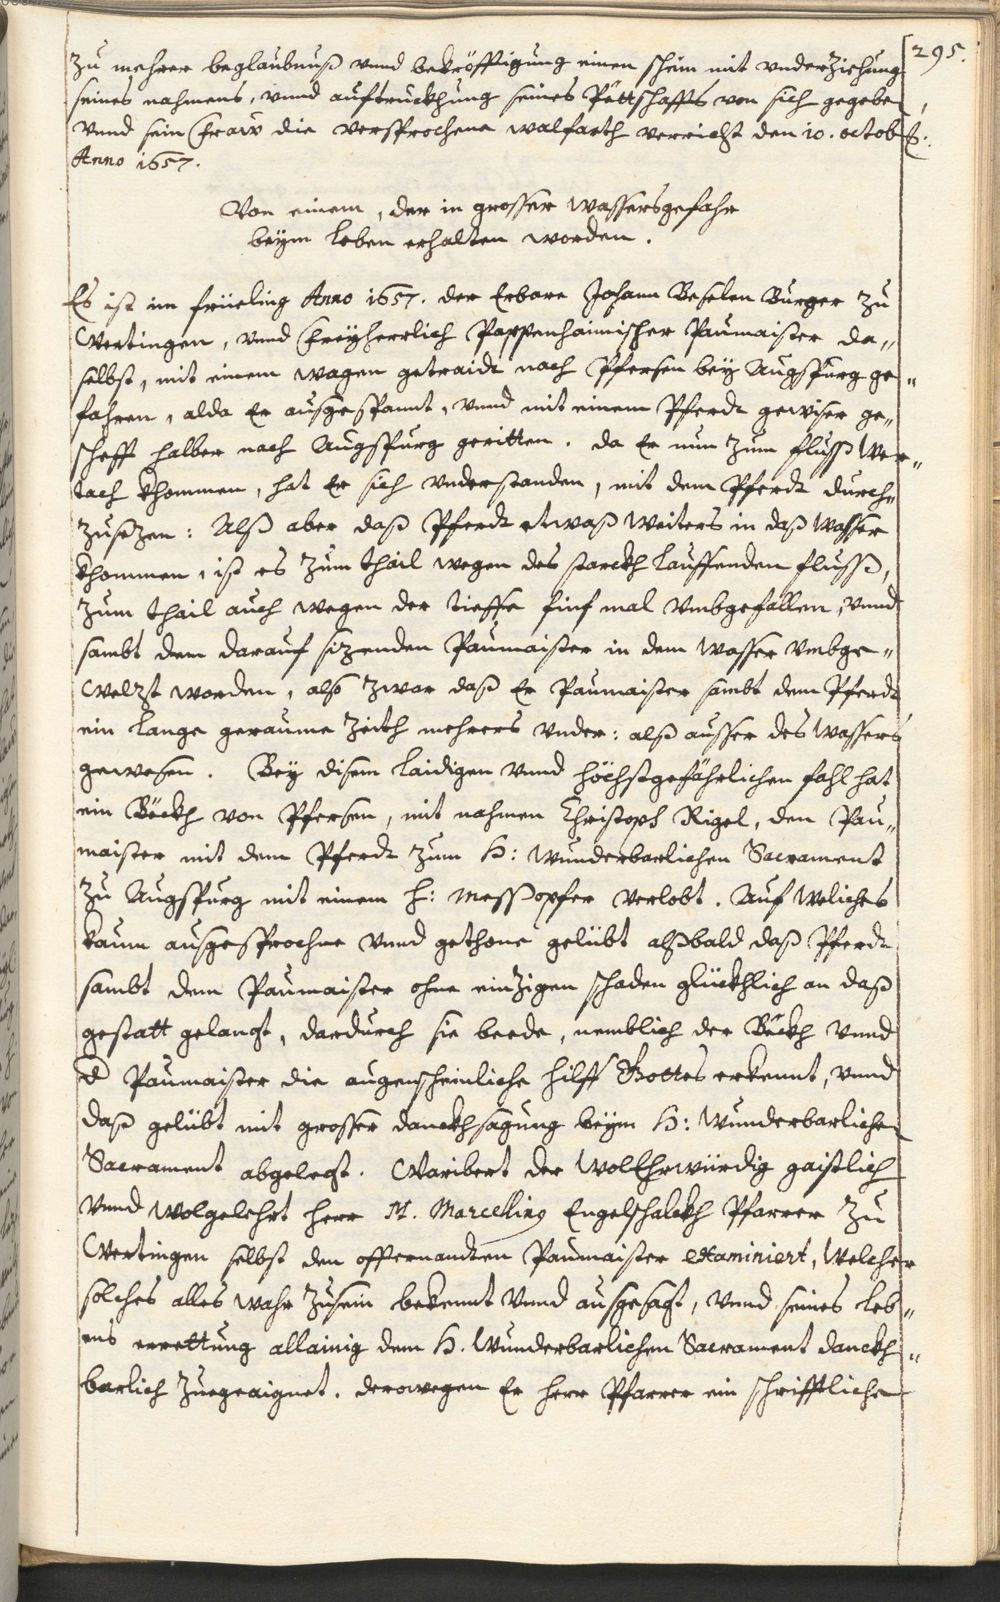 295.
Zu mehrer beglaubnuß vnnd bekröfftigung einen schein mit vnderziehung
seines nahmens, vnnd auftruckhung seines Pettschaffts von sich gegeben,
vnnd sein fraw die versprochene walfarth verricht den 10. octob.
Anno 1657.
Von einem, der in grosser wassersgefahr
beÿm leben erhalten worden.
Es ist im früeling Anno 1657. der Erbare Johann Beselen Burger zu
Wertingen, vnnd freÿherrlich Pappenhaimischer Paumaister da„
selbst, mit einem wagen getraidt nach Pfersen beÿ Augspurg ge„
fahren, alda Er ausgespannt, vnnd mit einem Pferdt gewiser ge„
schefft halber nach Augspurg geritten. da Er nun zum fluss Wer„
tach khommen, hat Er sich vnderstanden, mit dem Pferdt durch„
zusezen: Alß aber daß Pferdt etwaß weiters in daß wasser
khommen, ist es zum thail wegen des starckh lauffenden fluss,
zum thail auch wegen der tieffe finf mal vmbgefallen, vnnd
sambt dem darauf sizenden Paumaister in dem wasser vmbge„
welzt worden, also zwar daß Er Paumaister sambt dem Pferdt
ein lange geraume Zeith mehrers vnder: alß ausser des wassers
gewesen. Beÿ disem laidigen vnnd höchstgefährlichen fahl hat
ein Böckh von Pfersen, mit nahmen Christoph Rigel, den Pau„
maister mit dem Pferdt zum H: wunderbarlichen Sacrament
zu Augspurg mit einem H: Messopfer verlobt. Auf weliches
kaum ausgesprochne vnnd gethone gelübt alßbald daß Pferdt
sambt dem Paumaister ohne einzigen schaden glückhlich an daß
gestatt gelangt, dardurch sie beede, nemblich der Böckh vnnd
d Paumaister die augenscheinliche hilff Gottes erkennt, vnnd
daß gelübt mit grosser danckhsagung beÿm H: wunderbarlichen
Sacrament abgelegt. Warbert der WolEhrwürdig gaistlich
vnnd wolgelehrt herr M. Marcellinus Engelschalckh Pfarrer zu
Wertingen selbst den offternandten Paumaister examiniert, welcher
solches alles wahr zusein bekennt vnnd ausgesagt, vnnd seines leb„
ens errettung allainig dem H. wunderbarlichen Sacrament danckh„
barlich zuegeaignet. derowegen Er herr Pfarrer ein schrifftliche